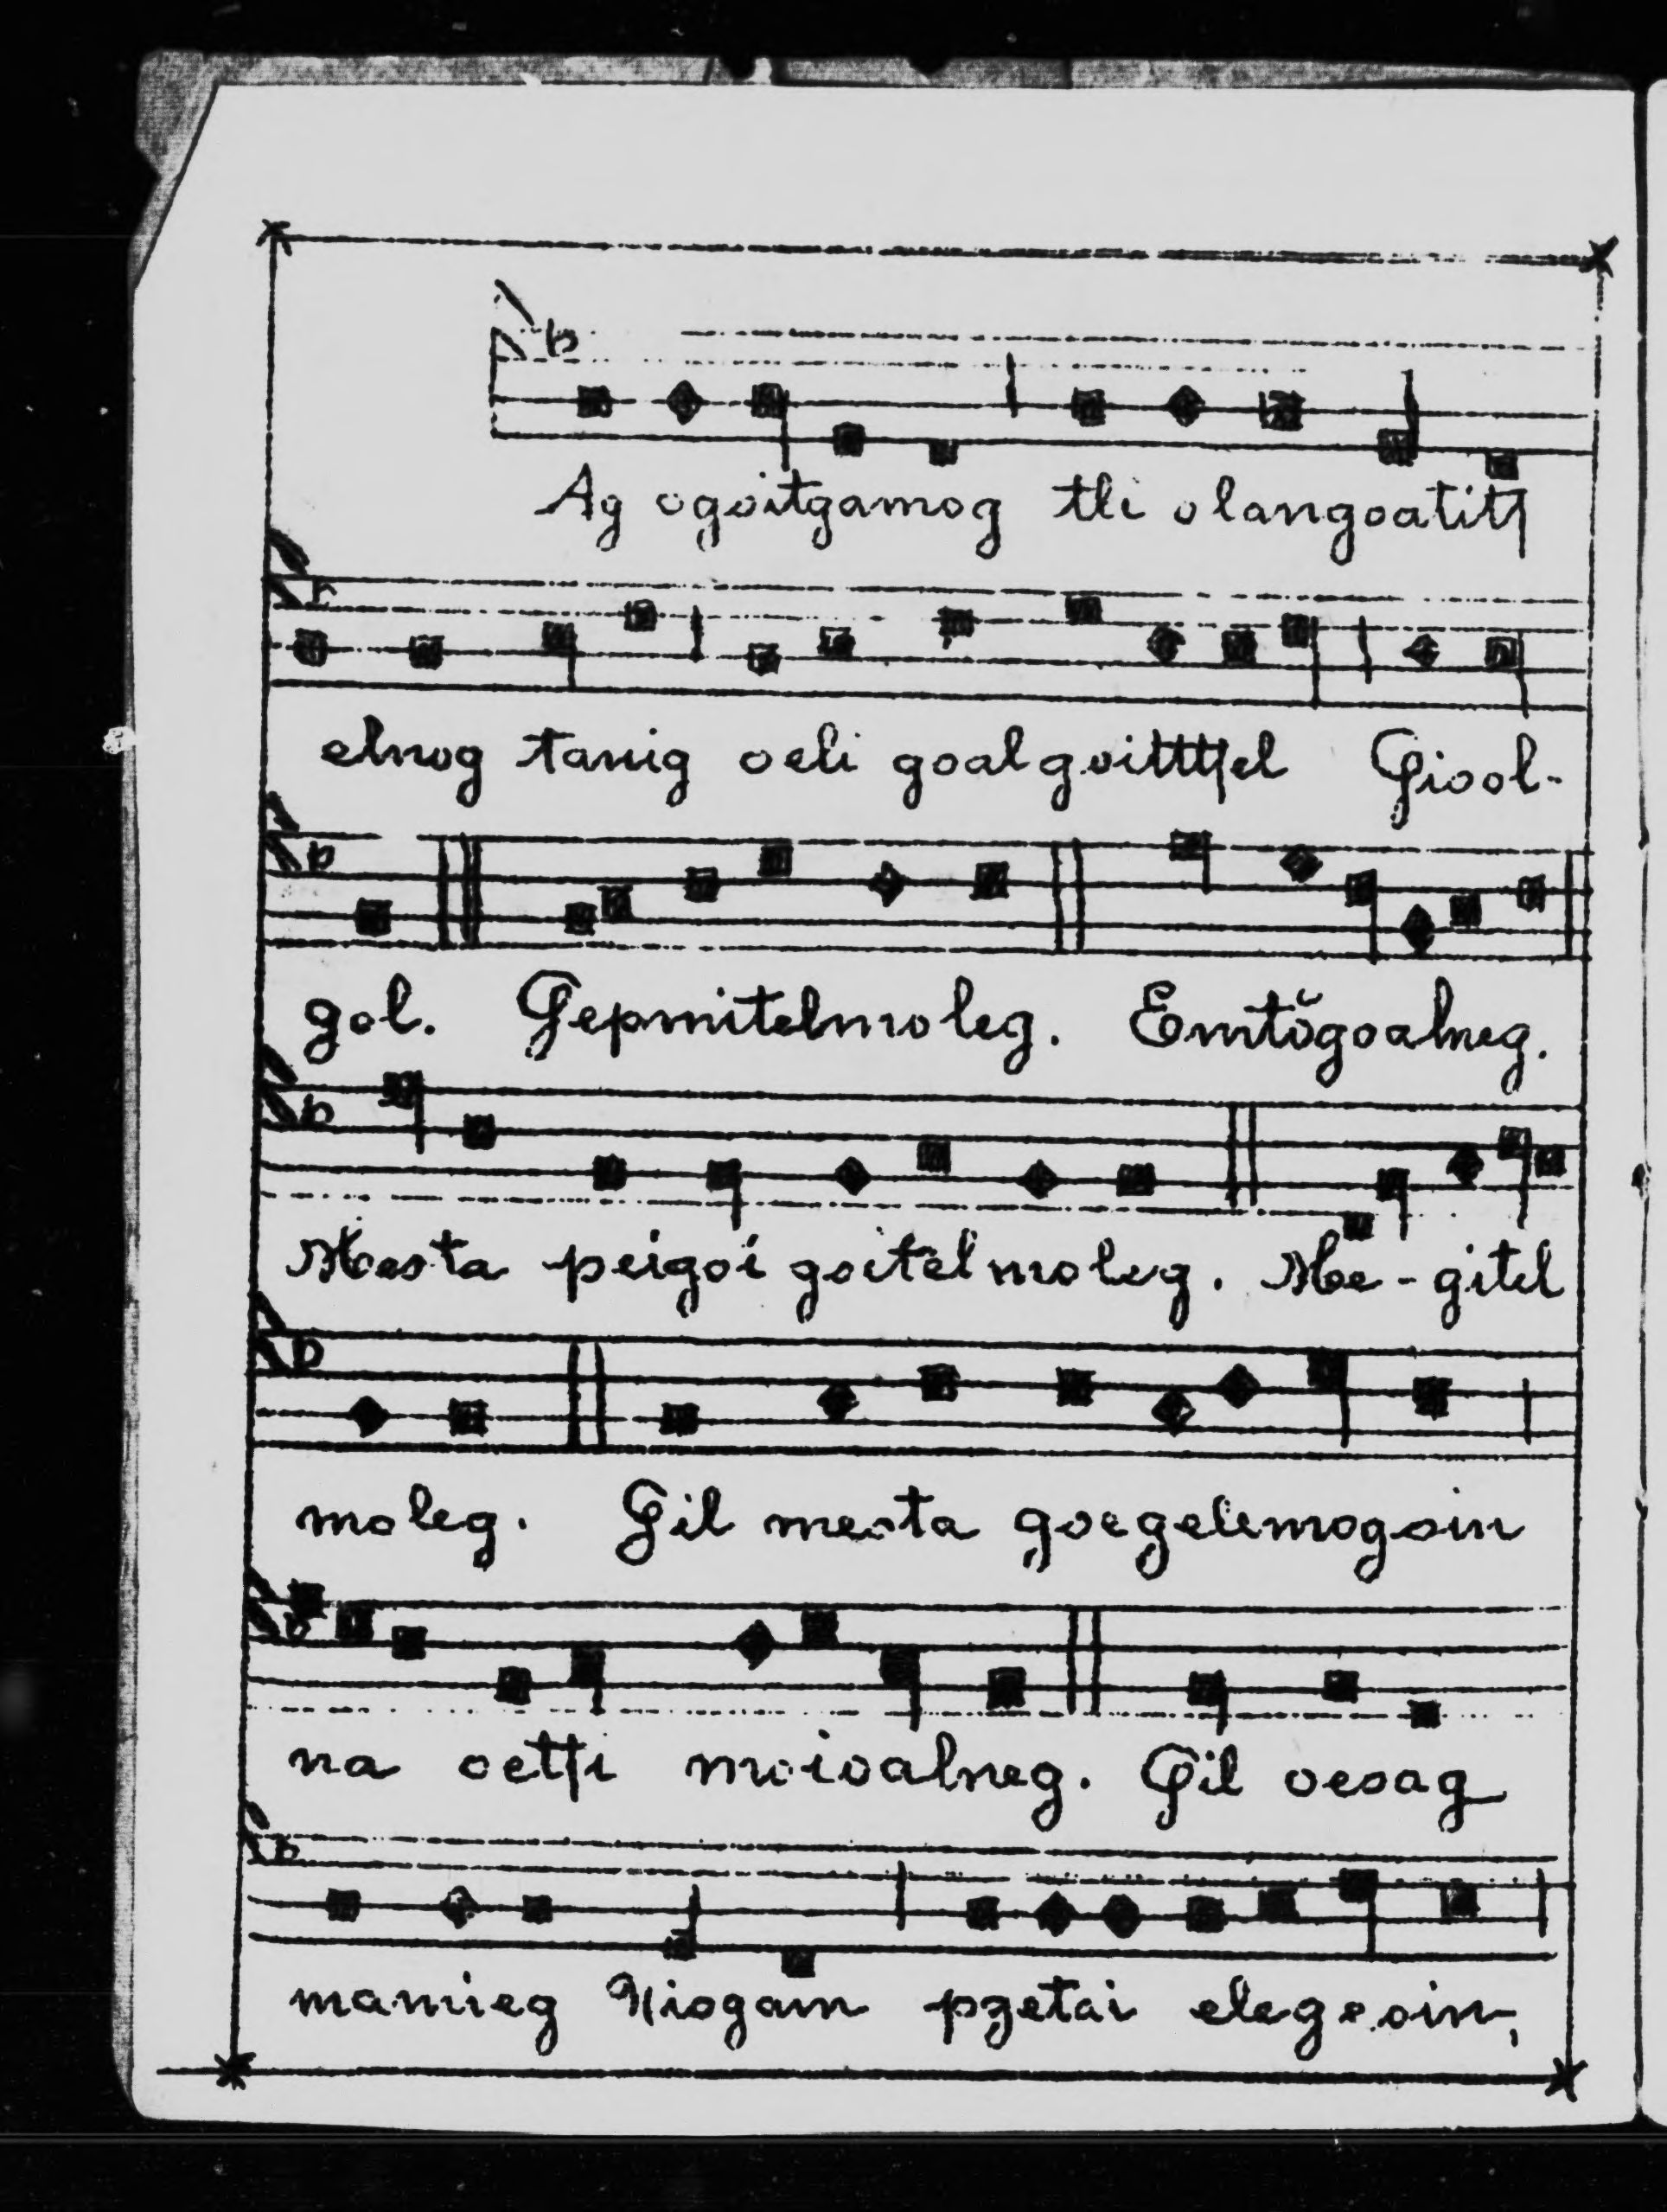 Ag ogoitgamog tli olangoatitj
elnog tanig oeli goalgoitttjel Giool-
gol. Gepmitelmoleg. Emtŏgoalneg.
Mesta peigoi goitelmoleg. Me-gitel
moleg. Gil mesta goegelemogoin
na oetji moioalneg. Gil oesag
mamieg Niogam pgetai elegeoin,